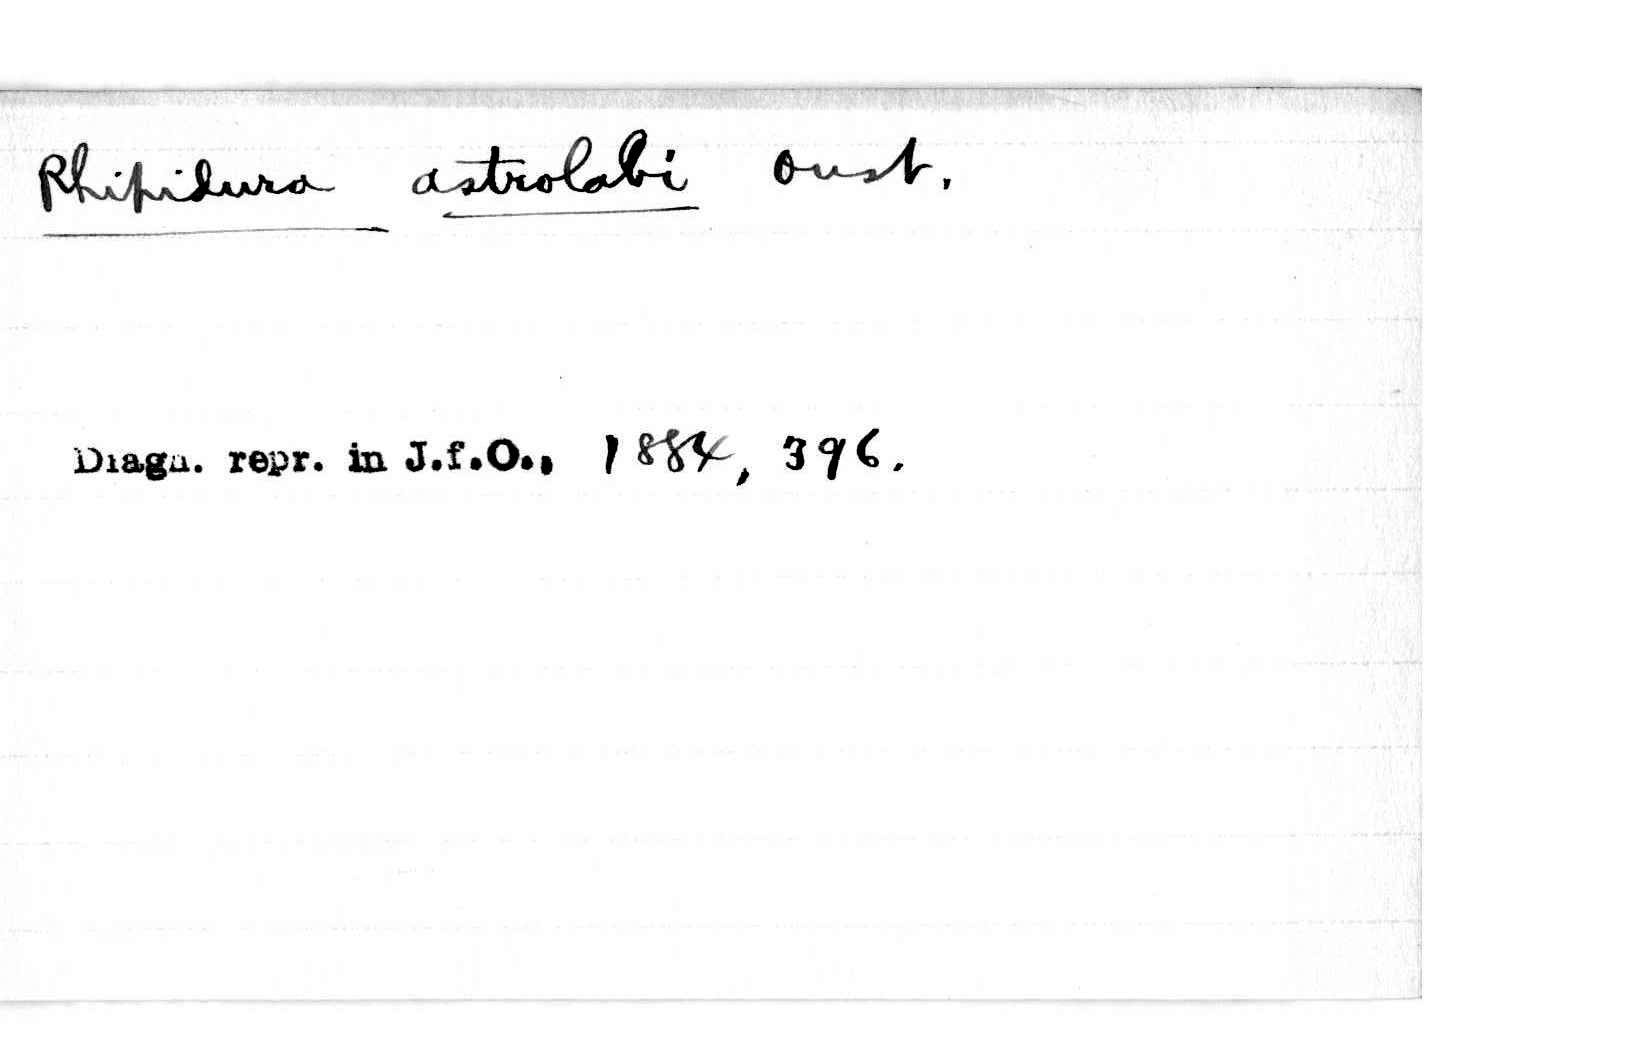 Rhipidura astrolabi Oust.
Diagn. repr. in J.f.O., 1884, 396.